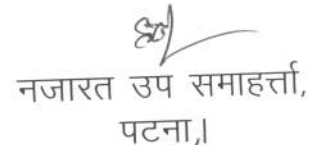 नजारत उप समाहर्त्ता,
पटना,।